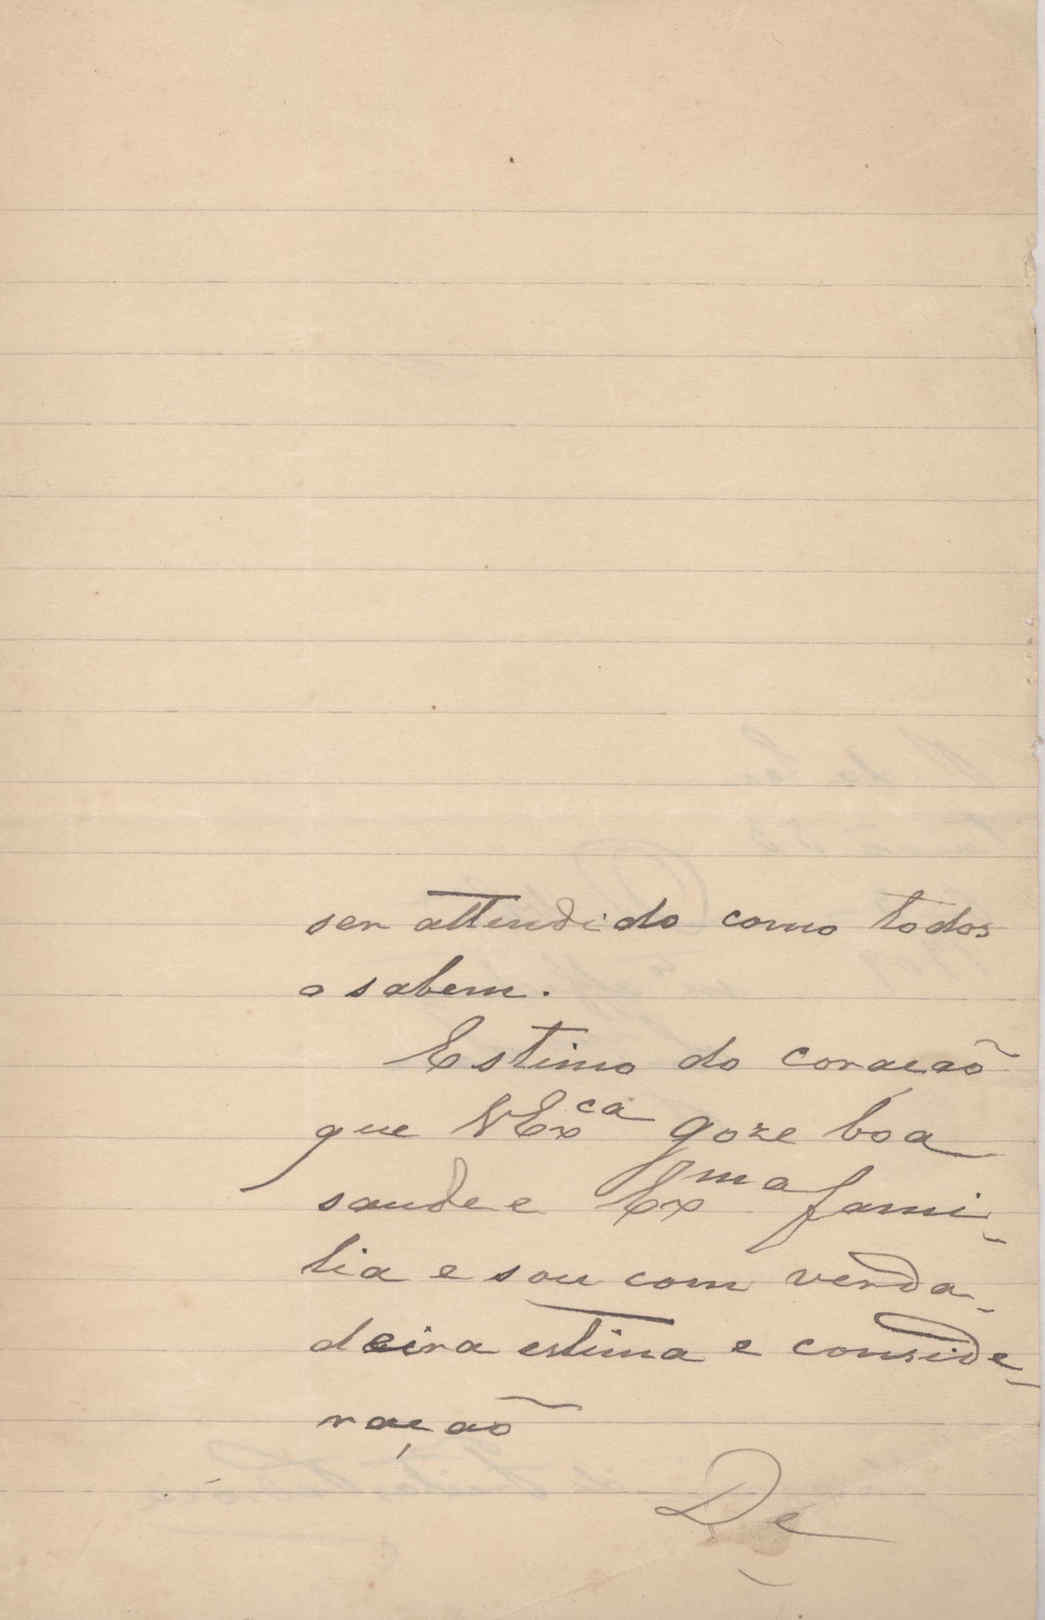 ser attendido como todos
o sabem.
Estimo do coração
que VEx^ca goze boa
saude e Ex^ma fami-
lia e sou com verda-
deira estima e conside-
ração
De